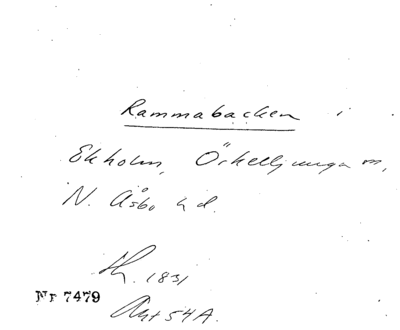 Rammabacken i
Ekholm, Örkelljunga m,
N. Åsbo hd.
1831
Nr 7479
54A.